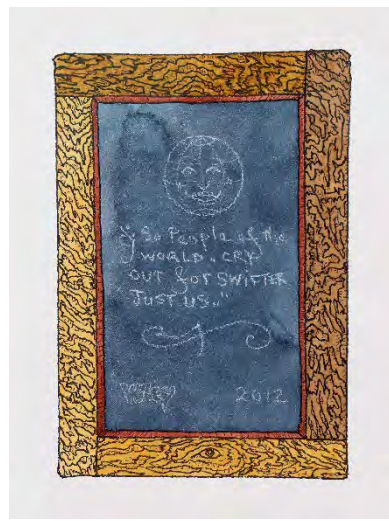 So People of the
WORLD.. CRY
OUT for SWIFTER
JUST US..."
2012